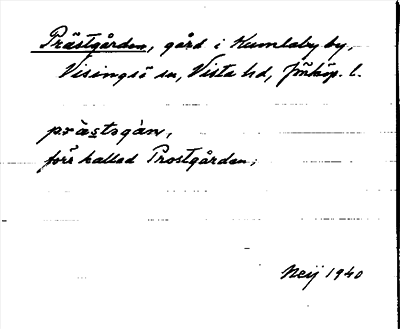 Prästgården, gård i Kumlaby by,
Visingsö sn, Vista hd, Jönköp. l.
präs̲tsgàn,
förr kallad Prostgården;
Neij 1940